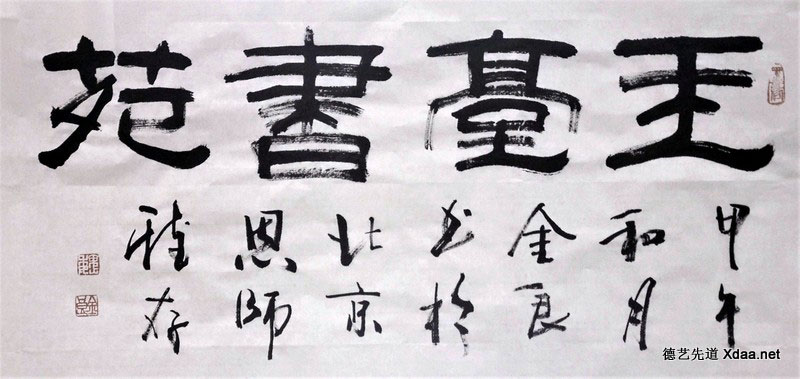 王臺書苑
甲午
和月
金良
书於
北京
恩師
雅存
德艺先道 Xdaa.net